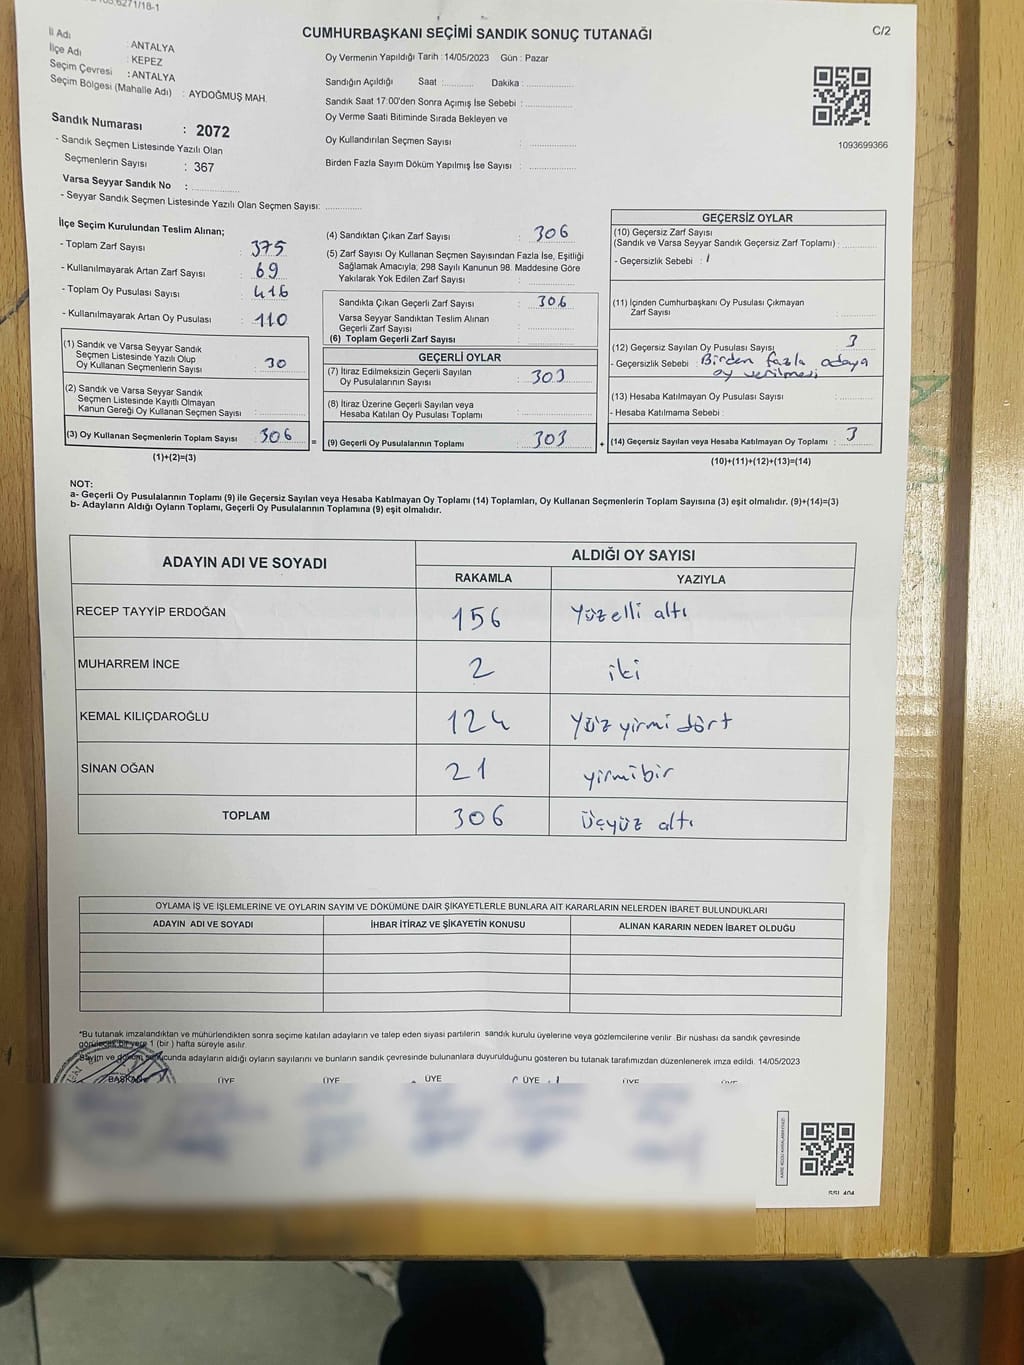 6271/18-1
CUMHURBAŞKANI SEÇİMİ SANDIK SONUÇ TUTANAĞI
C/2
İl Adı : ANTALYA
İlçe Adı : KEPEZ
Seçim Çevresi : ANTALYA
Seçim Bölgesi (Mahalle Adı) : AYDOĞMUŞ MAH.
Oy Vermenin Yapıldığı Tarih : 14/05/2023 Gün : Pazar
Sandığın Açıldığı Saat :........... Dakika : ................
Sandık Saat 17:00'den Sonra Açımış İse Sebebi : ................
Oy Verme Saati Bitiminde Sırada Bekleyen ve
Oy Kullandırılan Seçmen Sayısı : ................
Birden Fazla Sayım Döküm Yapılmış İse Sayısı : ................
1093699366
Sandık Numarası : 2072
- Sandık Seçmen Listesinde Yazılı Olan
Seçmenlerin Sayısı : 367
Varsa Seyyar Sandık No : ................
- Seyyar Sandık Seçmen Listesinde Yazılı Olan Seçmen Sayısı: ............
İlçe Seçim Kurulundan Teslim Alınan;
- Toplam Zarf Sayısı : 375
- Kullanılmayarak Artan Zarf Sayısı : 69
- Toplam Oy Pusulası Sayısı : 416
- Kullanılmayarak Artan Oy Pusulası : 110
(1) Sandık ve Varsa Seyyar Sandık
Seçmen Listesinde Yazılı Olup
Oy Kullanan Seçmenlerin Sayısı : 30
(2) Sandık ve Varsa Seyyar Sandık
Seçmen Listesinde Kayıtlı Olmayan
Kanun Gereği Oy Kullanan Seçmen Sayısı : ............
(3) Oy Kullanan Seçmenlerin Toplam Sayısı : 306
(1)+(2)=(3)
(4) Sandıktan Çıkan Zarf Sayısı : 306
(5) Zarf Sayısı Oy Kullanan Seçmen Sayısından Fazla İse, Eşitliği
Sağlamak Amacıyla; 298 Sayılı Kanunun 98. Maddesine Göre
Yakılarak Yok Edilen Zarf Sayısı : ............
Sandıkta Çıkan Geçerli Zarf Sayısı : 306
Varsa Seyyar Sandıktan Teslim Alınan
Geçerli Zarf Sayısı : ............
(6) Toplam Geçerli Zarf Sayısı : ............
GEÇERLİ OYLAR
(7) İtiraz Edilmeksizin Geçerli Sayılan
Oy Pusulalarının Sayısı : 303
(8) İtiraz Üzerine Geçerli Sayılan veya
Hesaba Katılan Oy Pusulası Toplamı : ............
= (9) Geçerli Oy Pusulalarının Toplamı : 303
GEÇERSİZ OYLAR
(10) Geçersiz Zarf Sayısı
(Sandık ve Varsa Seyyar Sandık Geçersiz Zarf Toplamı) : ............
- Geçersizlik Sebebi : /
(11) İçinden Cumhurbaşkanı Oy Pusulası Çıkmayan
Zarf Sayısı : ............
(12) Geçersiz Sayılan Oy Pusulası Sayısı : 3
- Geçersizlik Sebebi : Birden fazla adaya
oy verilmesi
(13) Hesaba Katılmayan Oy Pusulası Sayısı : ............
- Hesaba Katılmama Sebebi :
+ (14) Geçersiz Sayılan veya Hesaba Katılmayan Oy Toplamı : 3
(10)+(11)+(12)+(13)=(14)
NOT:
a- Geçerli Oy Pusulalarının Toplamı (9) ile Geçersiz Sayılan veya Hesaba Katılmayan Oy Toplamı (14) Toplamları, Oy Kullanan Seçmenlerin Toplam Sayısına (3) eşit olmalıdır. (9)+(14)=(3)
b- Adayların Aldığı Oyların Toplamı, Geçerli Oy Pusulalarının Toplamına (9) eşit olmalıdır.
ADAYIN ADI VE SOYADI ALDIĞI OY SAYISI
RAKAMLA YAZIYLA
RECEP TAYYİP ERDOĞAN 156 Yüzelli altı
MUHARREM İNCE 2 iki
KEMAL KILIÇDAROĞLU 124 Yüz yirmi dört
SİNAN OĞAN 21 yirmibir
TOPLAM 306 Üçyüz altı
OYLAMA İŞ VE İŞLEMLERİNE VE OYLARIN SAYIM VE DÖKÜMÜNE DAİR ŞİKAYETLERLE BUNLARA AİT KARARLARIN NELERDEN İBARET BULUNDUKLARI
ADAYIN ADI VE SOYADI İHBAR İTİRAZ VE ŞİKAYETİN KONUSU ALINAN KARARIN NEDEN İBARET OLDUĞU
*Bu tutanak imzalandıktan ve mühürlendikten sonra seçime katılan adayların ve talep eden siyasi partilerin sandık kurulu üyelerine veya gözlemcilerine verilir. Bir nüshası da sandık çevresinde
görülecek bir yere 1 (bir) hafta süreyle asılır.
Sayım ve döküm sonucunda adayların aldığı oyların sayılarını ve bunların sandık çevresinde bulunanlara duyurulduğunu gösteren bu tutanak tarafımızdan düzenlenerek imza edildi. 14/05/2023
BAŞKAN ÜYE ÜYE ÜYE ÜYE ÜYE ÜYE